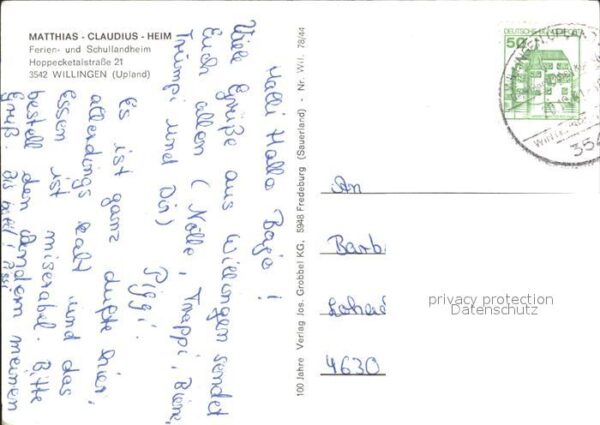 MATTHIAS - CLAUDIUS - HEIM
Ferien- und Schullandheim
Hoppecketalstraße 21
3542 WILLINGEN (Upland)
Halli Hallo Baje!
Viele Grüße aus Willingen sendet
Euch allen (Nölle, Trappi, Biene,
Trümpi und Dir)
Piggi.
Es ist ganz dufte hier,
allerdings kalt und das
Essen ist miserabel. Bitte
bestell den andern meinen
Gruß. Bis bald!
100 Jahre Verlag Jos. Grobbel KG, 5948 Fredeburg (Sauerland) - Nr. Wil. 78/44
DEUTSCHE BUNDESPOST
50
WILLINGEN, UPLAND
354
An
Barb
4630
privacy protection
Datenschutz